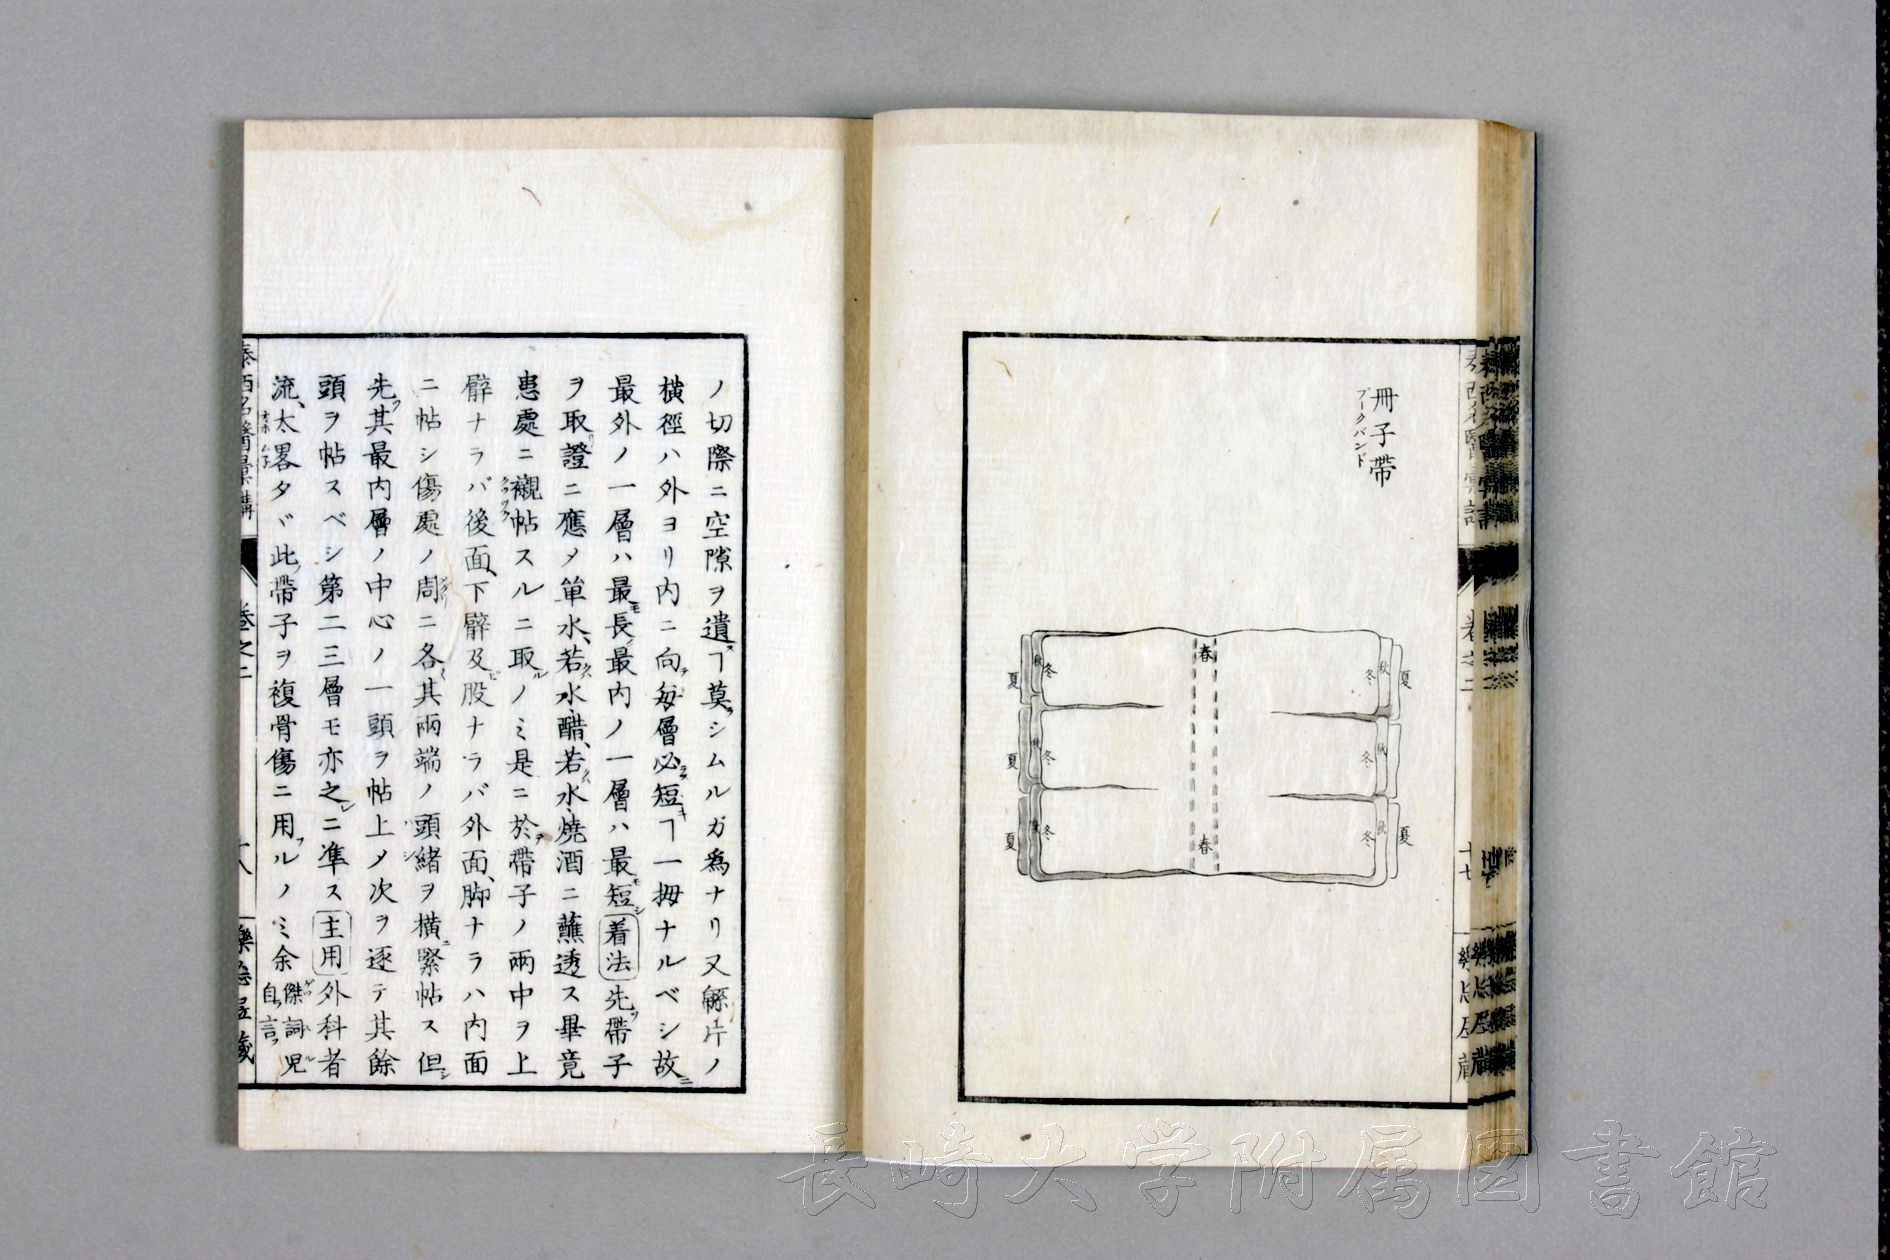 冊子帶
ブークバンド
春
夏 秋 冬
冬 秋 夏
夏 秋 冬
冬 秋 夏
夏 秋 冬
冬 秋 夏
春
卷之二
十七
ノ切際ニ空隙ヲ遺スヿ莫ラシムルガ爲ナリ又解片ノ
横徑ハ外ヨリ内ニ向テ毎層必ラズ短キヿ一拇ナルベシ故ニ
最外ノ一層ハ最モ長ク最内ノ一層ハ最モ短シ着法先ヅ帶子
ヲ取リ證ニ應メ單水、若クハ水醋、若クハ水燒酒ニ蘸透ス畢竟
患處ニ襯帖スルニ取ルノミ是ニ於テ帶子ノ兩中ヲ上
臂ナラバ後面、下臂及ビ股ナラバ外面、脚ナラハ内面
ニ帖シ傷處ノ周リニ各〻其兩端ノ頭緒ヲ橫ニ緊帖ス但シ
先ヅ其最内層ノ中心ノ一頭ヲ帖上メ次ヲ逐テ其餘
頭ヲ帖スベシ第二三層モ亦之レニ準ス主用外科者
流、太畧タヾ此ノ帶子ヲ複骨傷ニ用フルノミ余傑詞児自ラ言フ
泰西名醫彙講
卷之二
十八
長崎大学附属図書館